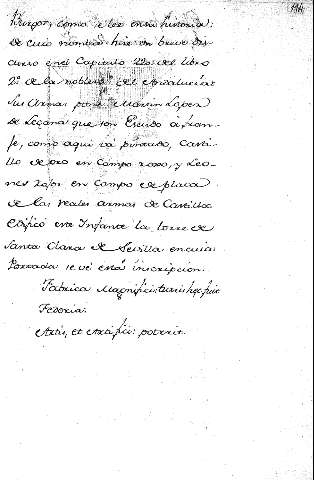 Burgos, como se lee en su historia:
de cuio nombre hize un breve dis-
curso en el Capitulo 220. del libro
2º de la nobleza del Andalucia:
sus Armas pone Martin Lopez
de Leçana que son Escudo a fran-
je, como aqui va pintado, Casti-
llo de oro en campo roxo, y Leo-
nes roxos en campo de plata
de las reales armas de Castilla.
edificó este Infante la torre de
Santa Clara de Sevilla en cuia
Portada se vé esta inscripcion.
Fabrica Magnifici turris hec fuit
Federici:
Artis, et Artifici: poterit.